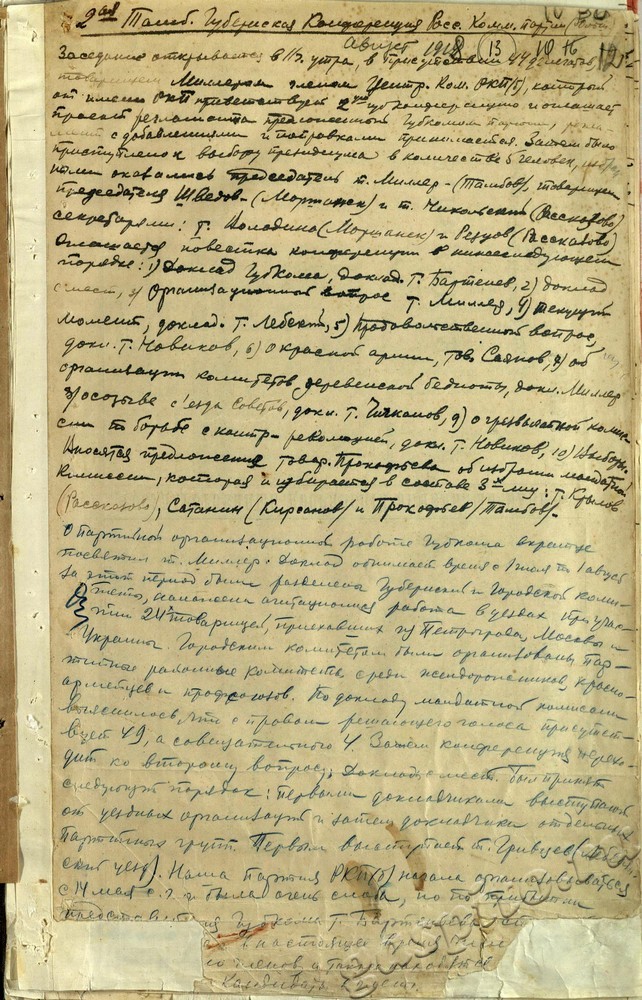 2ая Тамб. Губернская Конференция Росс. Комм. партии
Август 1918 (13)
Заседание открывается в 11ч. утра, в присутствии 44 делегатов,
товарищем Миллером членом Центр. Ком. РКП(б), который
от имени РКП приветствует 2ую губ. конференцию и оглашает
проект регламента предложенный Губкомом партии,
с добавлениями и поправками принимается. Затем было
приступлено к выбору президиума в количестве 5 человек,
ными оказались председатель т. Миллер - (Тамбов), товарищем
председателя Шведов - (Моршанск) и т. Никольский (Рассказово)
секретарями: т. Володина (Моршанск) и Резцов (Рассказово)
Оглашается повестка конференции в нижеследующем
порядке: 1) Доклад Губкома, доклад. т. Бартенев, 2) доклад
с мест, 3) Организационный вопрос т. Миллер, 4) текущий
момент, доклад. т. Лебский, 5) Продовольственный вопрос,
докл. т. Новиков, 6) о красной армии, тов. Саянов, 7) об
организации комитетов деревенской бедноты, докл. Миллер
8) о созыве с'езда Советов, докл. т. Чичканов, 9) о чрезвычайной комис-
сии по борьбе с контр-революцией, докл. т. Новиков, 10) Выборы.
Вносятся предложения товар. Прокофьева об избрании мандатной
комиссии, которая и избирается в составе 3х лиц: т. Крылов
(Рассказово), Сатанин (Кирсанов) и Прокофьев (Тамбов).
О партийной организационной работе Губкома вкратце
посвятил т. Миллер. Доклад обнимает время с 1 мая по 1 август
За этот период были разделены Губернский и Городской коми-
теты, налажена агитационная работа в уездах при учас-
тии 24х товарищей, приехавших из Петрограда, Москвы и
Украины. Городским комитетом были организованы пар-
тийные районные комитеты среди железнодорожников, красно-
армейцев и профсоюзов. По докладу мандатной комиссии
выяснилось, что с правом решающего голоса присутст-
вует 49, а совещательного 4. Затем конференция перехо-
дит ко второму вопросу, докладу с мест. Был принят
следующий порядок: первыми докладчиками выступают
от уездных организаций и затем докладчики отдельных
партийных групп. Первым выступает т. Гривцев
ский уезд). Наша партия РКП(б) начала организовываться
с 14 мая с. г. и была очень слаба, но по прибытии
представителя Губкома т. Бартенева
в настоящее время
членов и
кандидаты